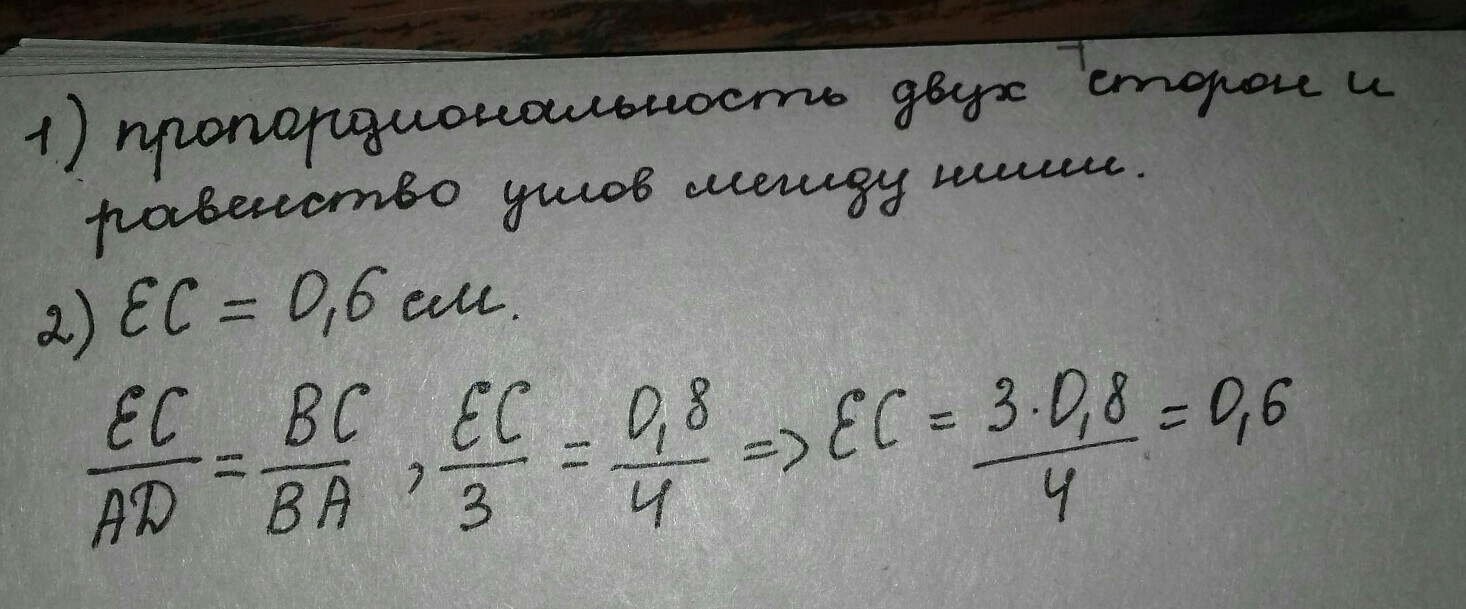 1) пропордиональность двух сторон и
равенство углов между ними.
2) EC = 0,6 см.
EC/AD = BC/BA , EC/3 = 0,8/4 => EC = 3·0,8/4 = 0,6